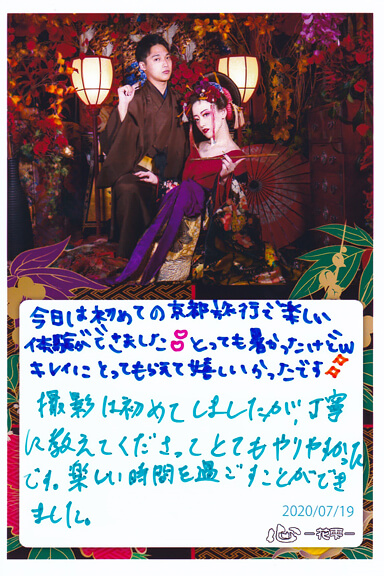 今日は初めての京都旅行で楽しい
体験ができました とっても暑かったけどw
キレイにとってもらえて嬉しいかったです
撮影は初めてしましたが、丁寧
に教えてくださってとてもやりやすかった
です。楽しい時間を過ごすことができ
ました。
2020/07/19
心 －花雫－